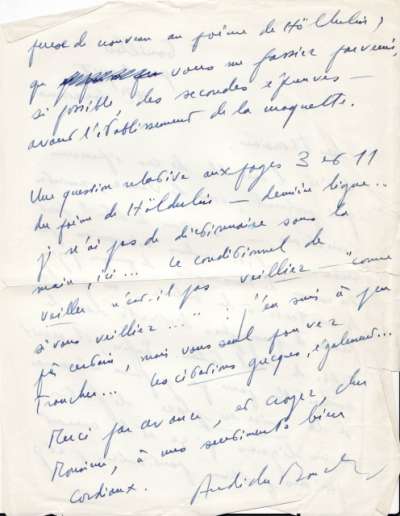 de nouveau au poème de Hölderlin,
que vous me fassiez parvenir,
si possible, des secondes épreuves —
avant l'établissement de la maquette.
Une question relative aux pages 3 et 11
du poème de Hölderlin — dernière ligne...
je n'ai pas de dictionnaire sous la
main, ici... le conditionnel de
veiller n'est-il pas veilliez — "comme
si vous veilliez..." : j'en suis à peu
près certain, mais vous seul pouvez
trancher... les citations grecques, également...
Merci par avance, et croyez, cher
Monsieur, à mes sentiments bien
cordiaux.
André du Bouchet